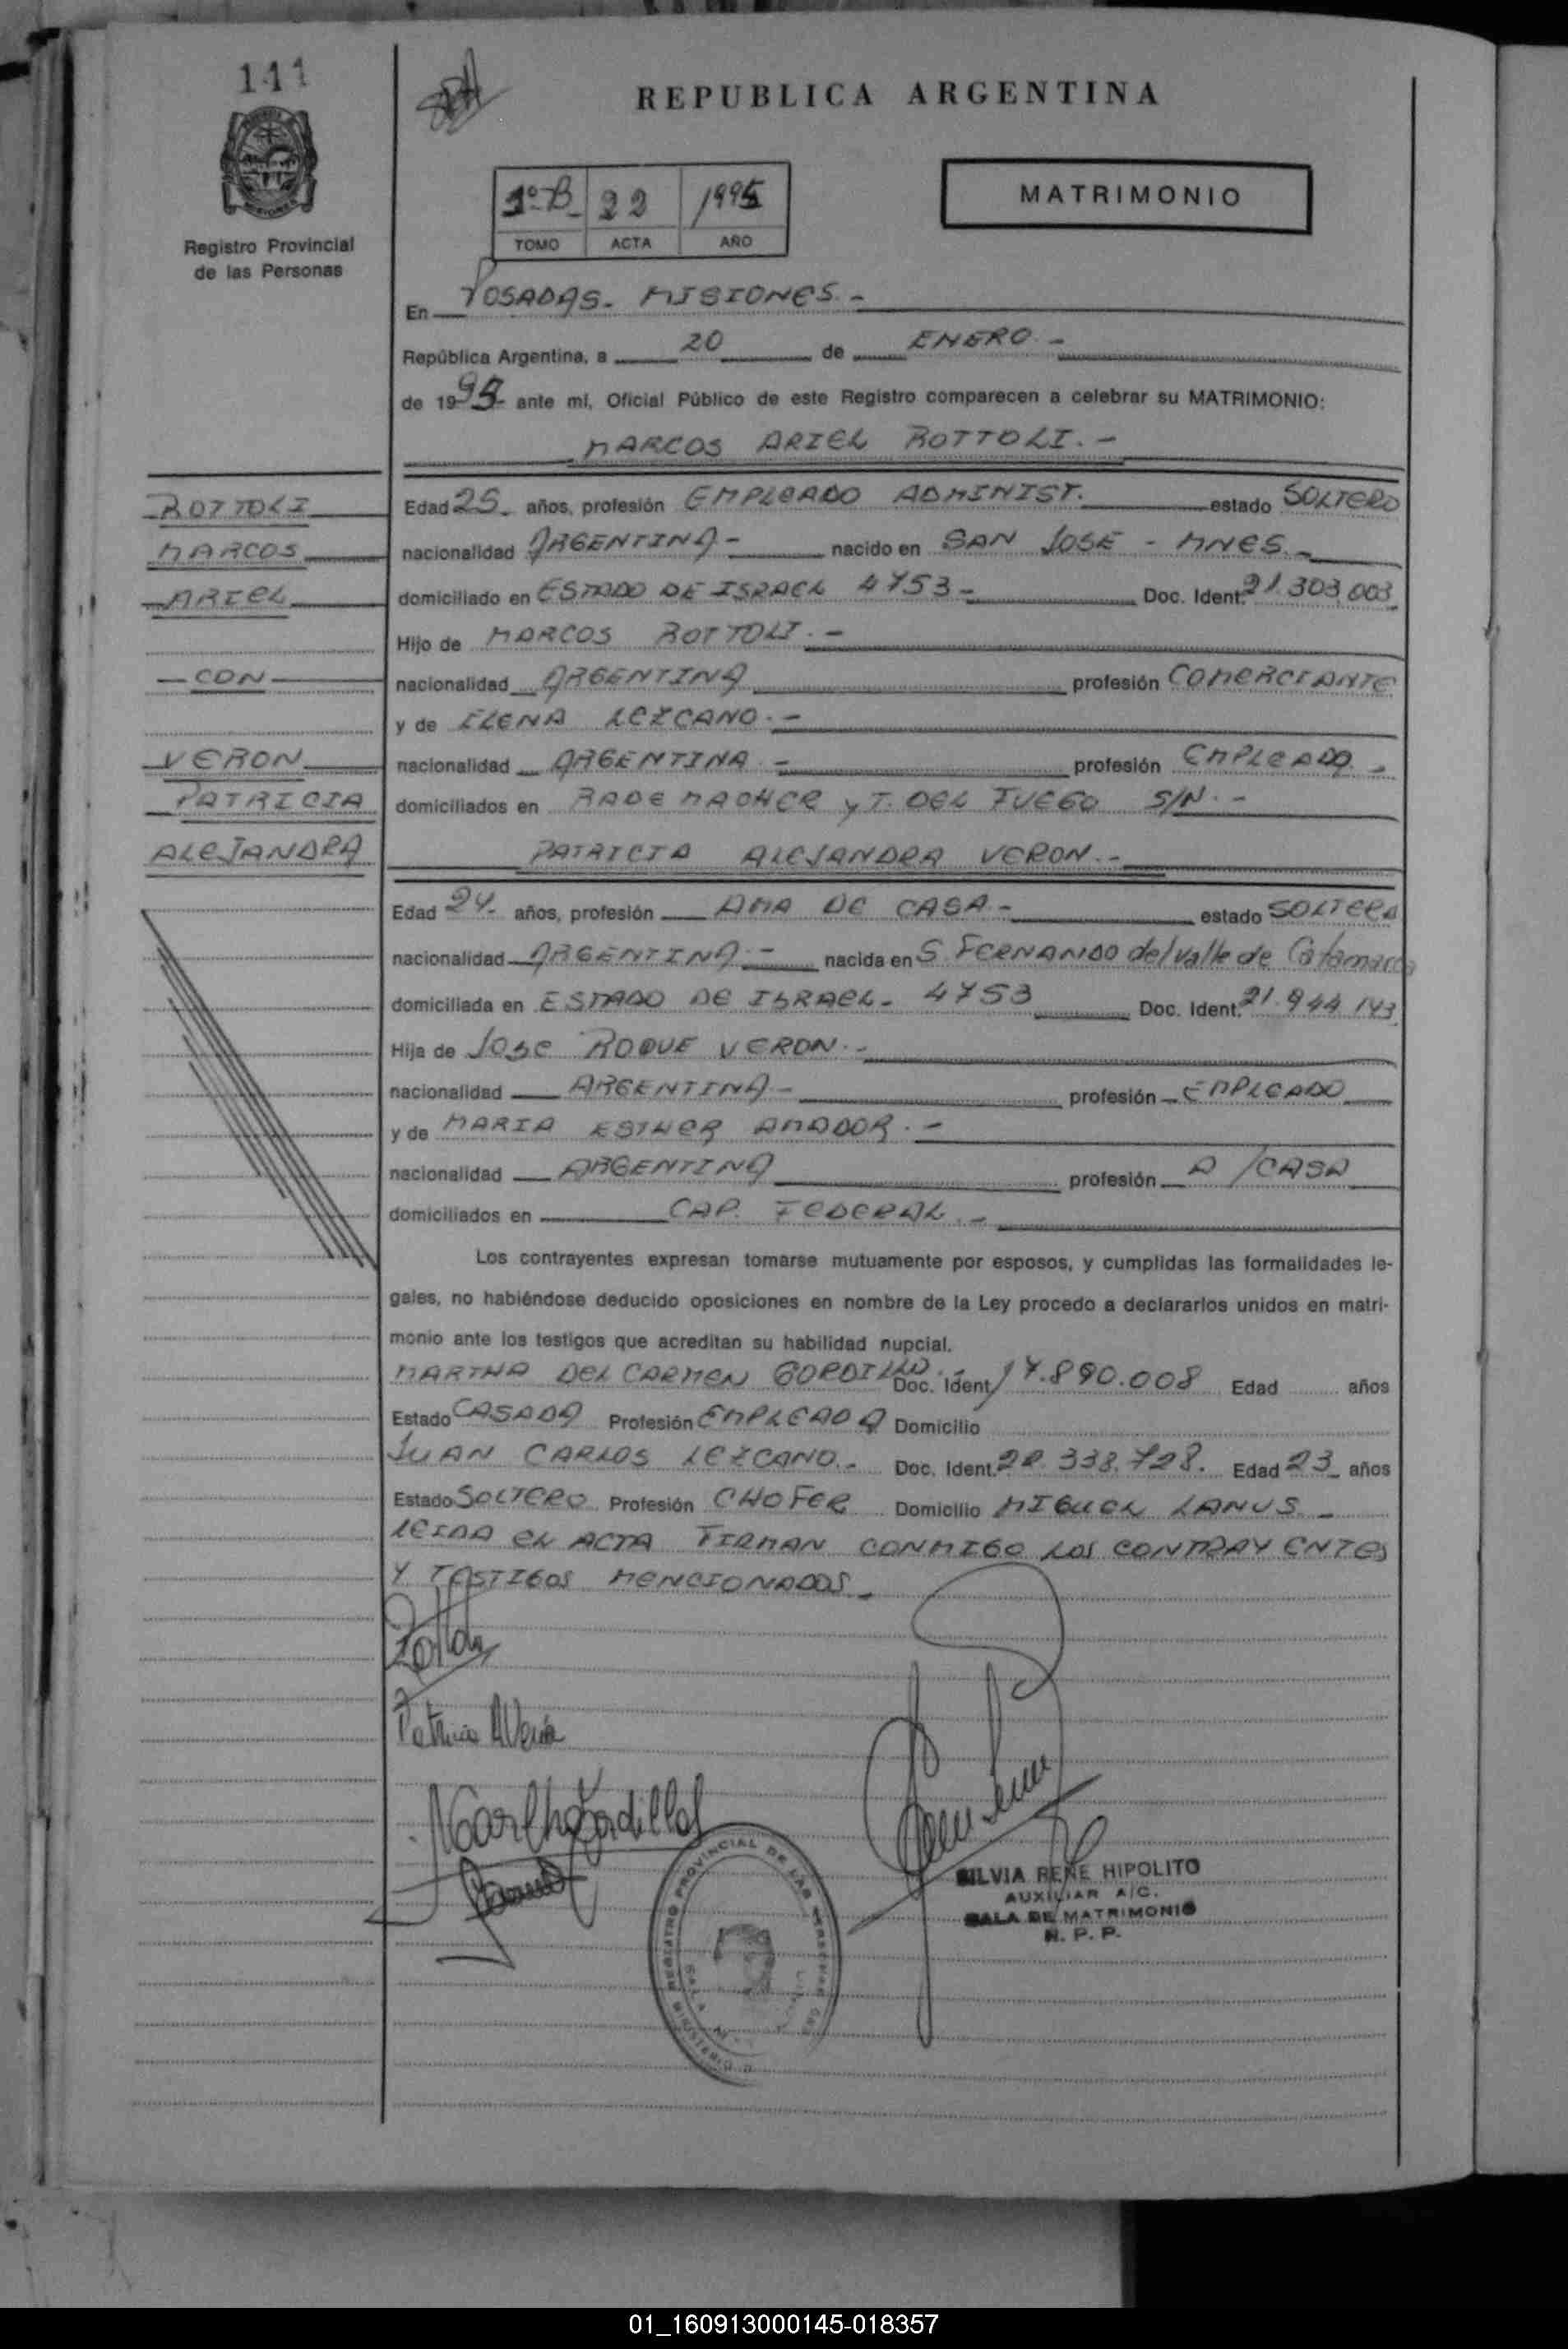 111
REPUBLICA ARGENTINA
Registro Provincial
de las Personas
1º B 22 1995
TOMO ACTA AÑO
MATRIMONIO
En POSADAS - MISIONES. -
República Argentina, a 20 de ENERO -
de 1995 ante mí, Oficial Público de este Registro comparecen a celebrar su MATRIMONIO:
MARCOS ARIEL BOTTOLI. -
BOTTOLI
MARCOS
ARIEL
CON
VERON
PATRICIA
ALEJANDRA
Edad 25 años, profesión EMPLEADO ADMINIST. estado SOLTERO
nacionalidad ARGENTINA - nacido en SAN JOSE - MNES -
domiciliado en ESTADO DE ISRAEL 4753 - Doc. Ident. 21.303.003
Hijo de MARCOS BOTTOLI. -
nacionalidad ARGENTINA profesión COMERCIANTE
y de ELENA LEZCANO. -
nacionalidad ARGENTINA - profesión EMPLEADA -
domiciliados en RADEMACHER y T. DEL FUEGO S/N. -
PATRICIA ALEJANDRA VERON. -
Edad 24 años, profesión AMA DE CASA - estado SOLTERA
nacionalidad ARGENTINA. - nacida en S. FERNANDO del Valle de Catamarca
domiciliada en ESTADO DE ISRAEL - 4753 Doc. Ident. 21.944.143
Hija de JOSE ROQUE VERON. -
nacionalidad ARGENTINA - profesión EMPLEADO
y de MARIA ESTHER AMADOR. -
nacionalidad ARGENTINA profesión A/CASA
domiciliados en CAP. FEDERAL. -
Los contrayentes expresan tomarse mutuamente por esposos, y cumplidas las formalidades le-
gales, no habiéndose deducido oposiciones en nombre de la Ley procedo a declararlos unidos en matri-
monio ante los testigos que acreditan su habilidad nupcial.
MARTHA DEL CARMEN GORDILLO. - Doc. Ident. 17.890.008 Edad años
Estado CASADA Profesión EMPLEADA Domicilio
JUAN CARLOS LEZCANO. - Doc. Ident. 22.338.728. Edad 23 años
Estado SOLTERO Profesión CHOFER Domicilio MIGUEL LANUS -
LEIDA EL ACTA FIRMAN CONMIGO LOS CONTRAYENTES
Y TESTIGOS MENCIONADOS -
Patricia A Verón
Martha Gordillo
SILVIA RENE HIPOLITO
AUXILIAR A/C.
SALA DE MATRIMONIO
R. P. P.
REGISTRO PROVINCIAL DE LAS
01_160913000145-018357